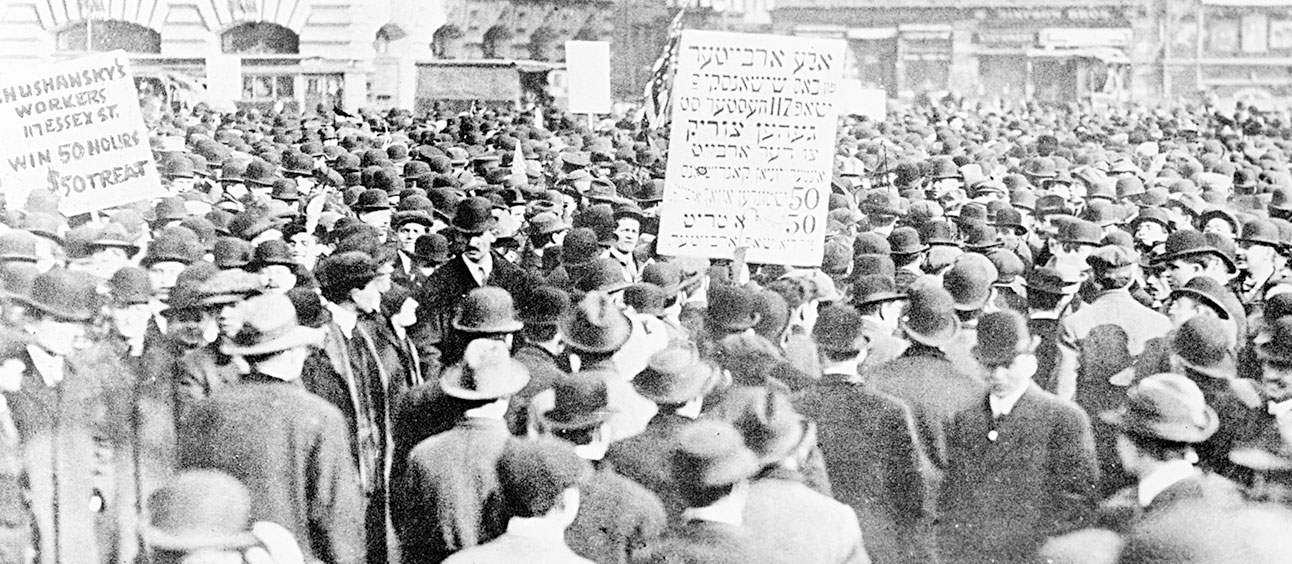 HUSHANSKY'S
WORKERS
117 ESSEX ST.
WIN 50 HOURS
$50 TREAT
אלע ארבייטער
פון באס שישאנסקי'ס
שאפ 117 העסטער סט
געהען צוריק
צו דער ארבייט
יוניאן
50 שטונדען
50 א טריט
ארבייטער